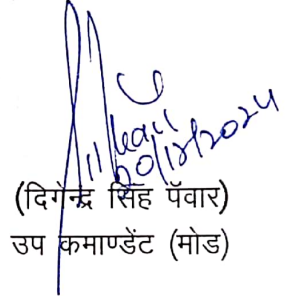 20/12/2024
(दिगेन्द्र सिंह पॅवार)
उप कमाण्डेंट (मोड)